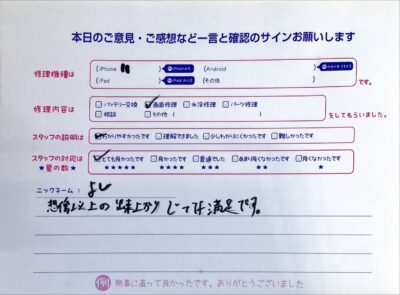 本日のご意見・ご感想など一言と確認のサインお願いします
修理機種は (iPhone 11 例 iPhoneX ) (Android 例 )
(iPad 例 iPad Air2 ) (その他 ) です。
修理内容は □バッテリー交換 ☑画面修理 □水没修理 □パーツ修理
□相談 □その他 ( ) をしてもらいました。
スタッフの説明は ☑わかりやすかったです □理解できました □少しわかりにくかったです □難しかったです
スタッフの対応は ☑とても良かったです □良かったです □普通でした □あまり良くなかったです □良くなかったです
★星の数★ ★★★★★ ★★★★ ★★★ ★★ ★
ニックネーム： よし
想像以上の出来上がりじっても満足です。
例 無事に直って良かったです。ありがとうございました